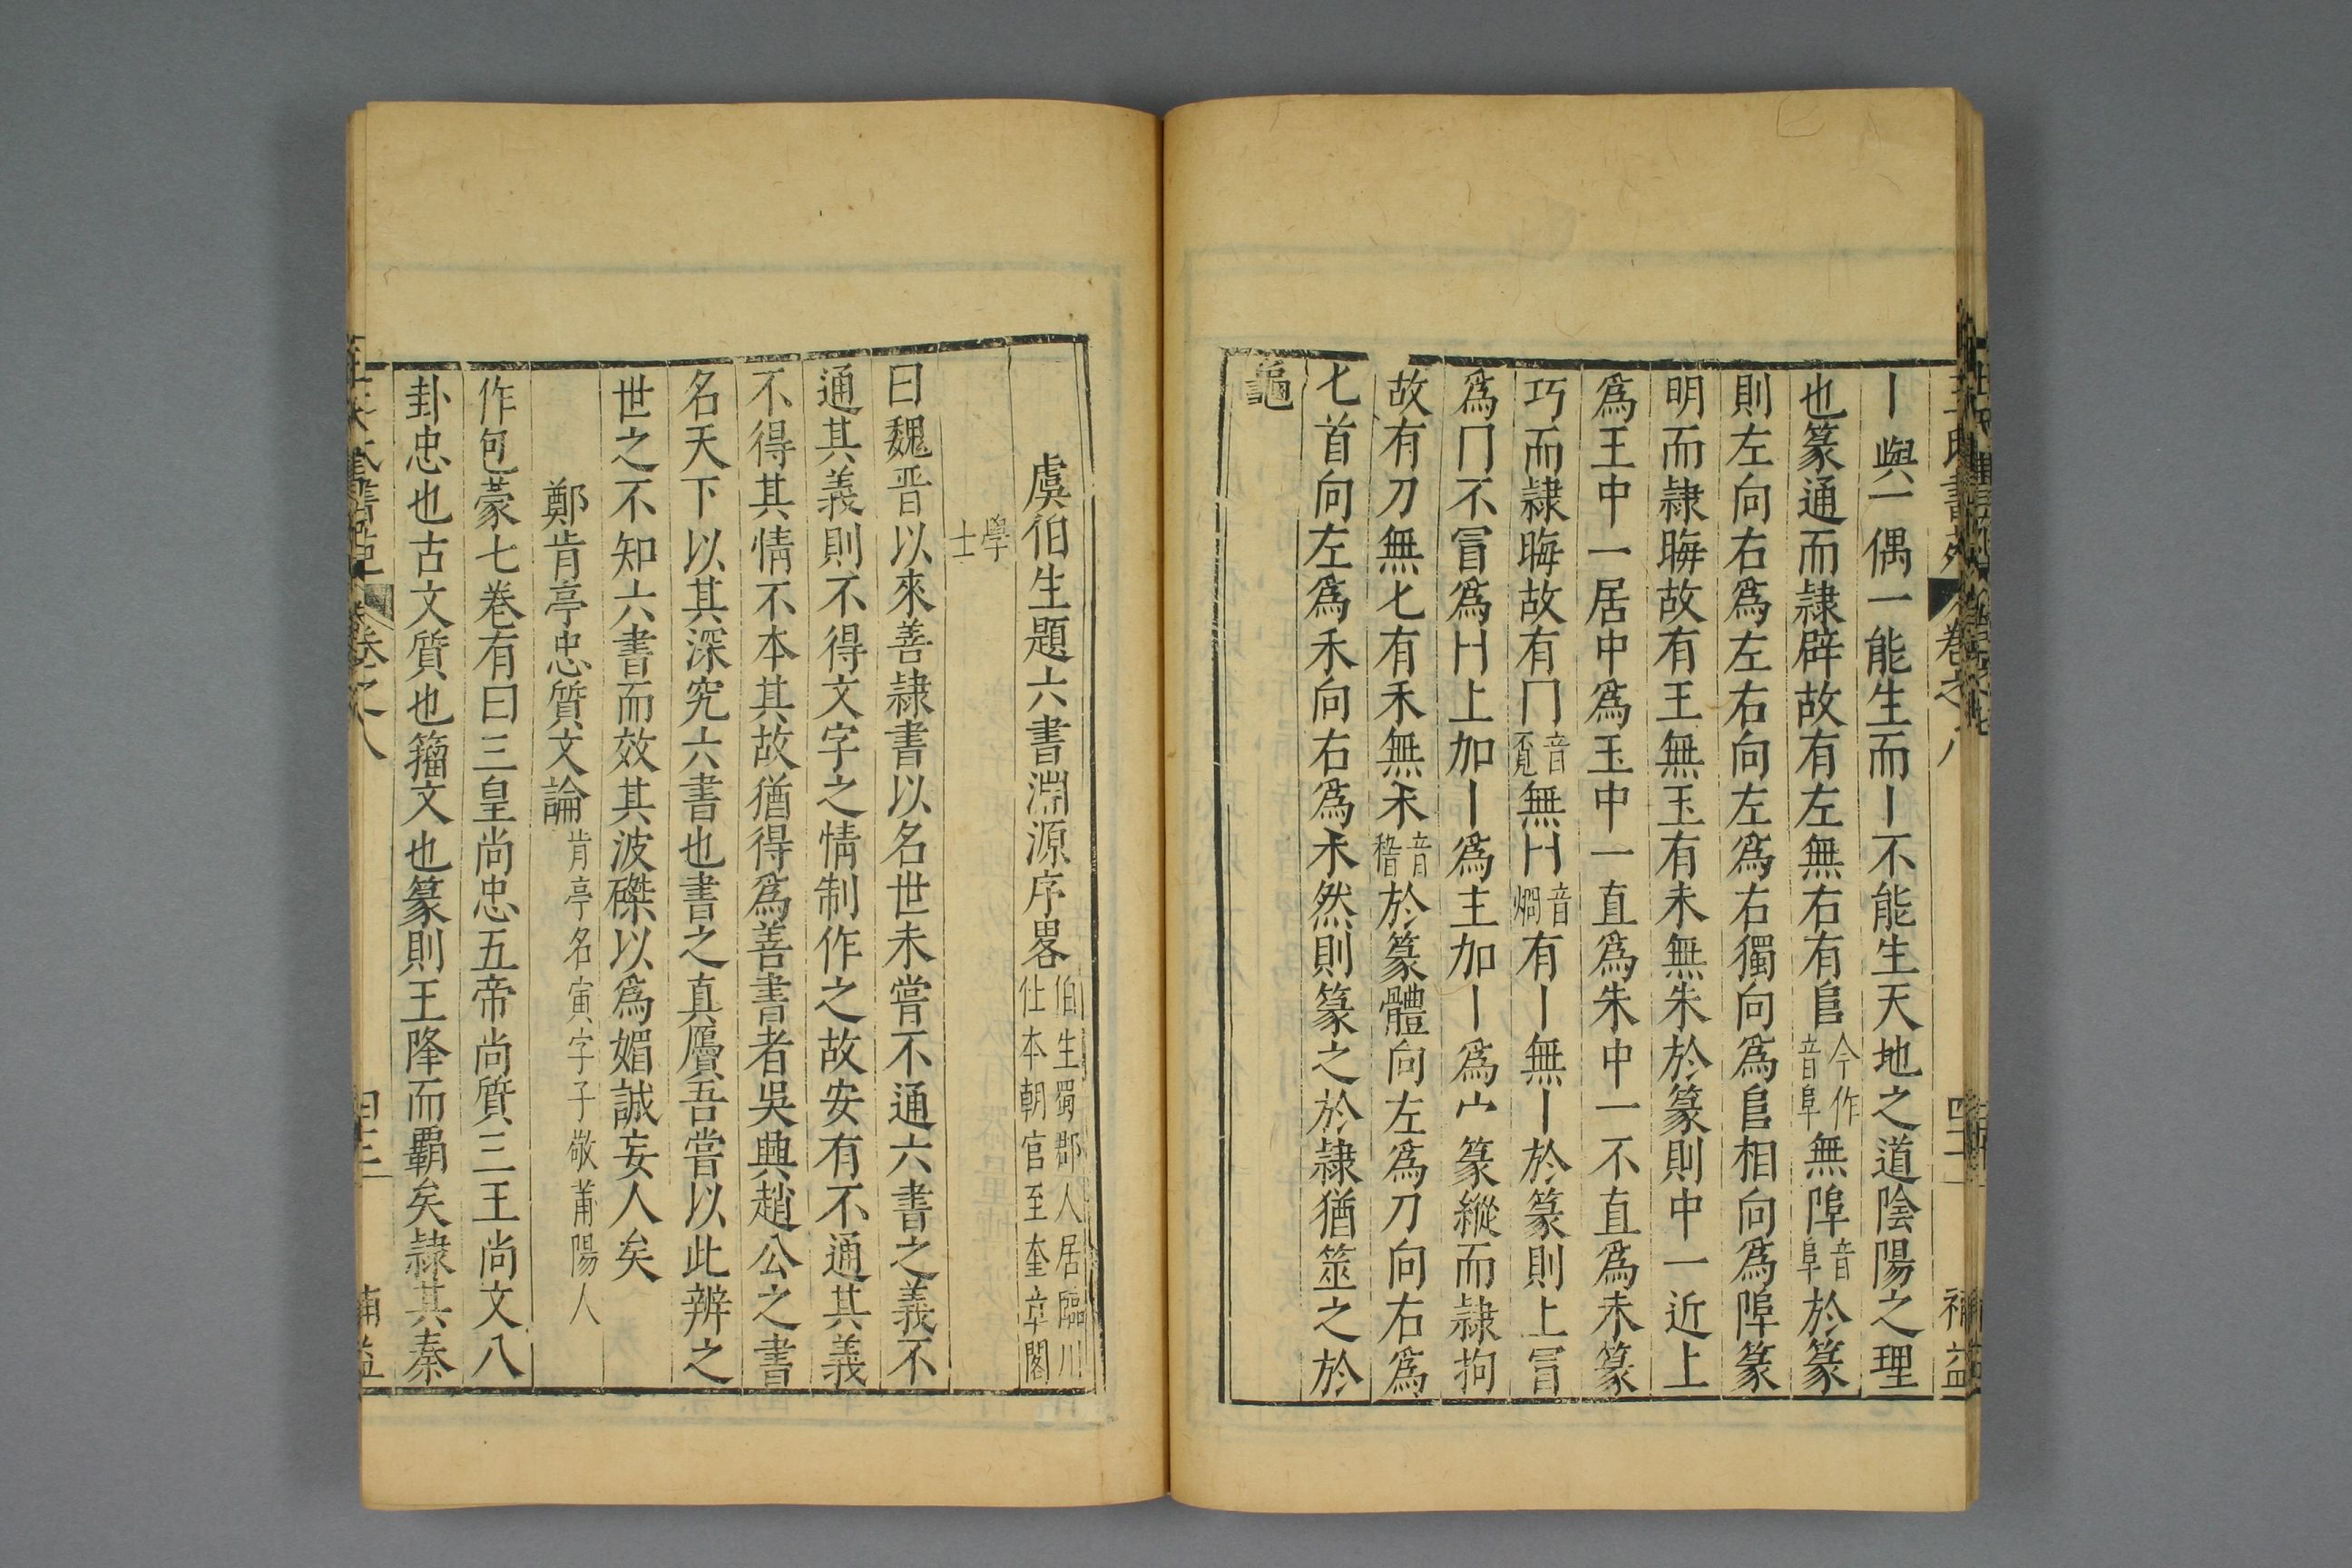 丨與一偶一能生而丨不能生天地之道陰陽之理
也篆通而隷辟故有左無右有𠂤今作音阜無𨸏音阜於篆
則左向右為左右向左為右獨向為𠂤相向為𨸏篆
明而隷晦故有王無玉有未無朱於篆則中一近上
為王中一居中為玉中一直為朱中一不直為未篆
巧而隷晦故有冂音覓無𠕁有丨無丨於篆則上冒
為冂不冒為上加丨為主加丨為宀篆縱而隷拘
故有刀無匕有禾無禾音稽於篆體向左為刀向右為
匕首向左為禾向右為禾然則篆之於隷猶筮之於
龜
虞伯生題六書淵源序畧伯生蜀郡人居臨川仕本朝官至奎章閣
學士
曰魏晋以來善隷書以名世未嘗不通六書之義不
通其義則不得文字之情制作之故安有不通其義
不得其情不本其故猶得為善書者吳興趙公之書
名天下以其深究六書也書之真贗吾嘗以此辨之
世之不知六書而效其波磔以為媚誠妄人矣
鄭肯亭忠質文論肯亭名寅字子敬莆陽人
作包蒙七巻有曰三皇尚忠五帝尚質三王尚文八
卦忠也古文質也籀文也篆則王降而覇矣隷其秦